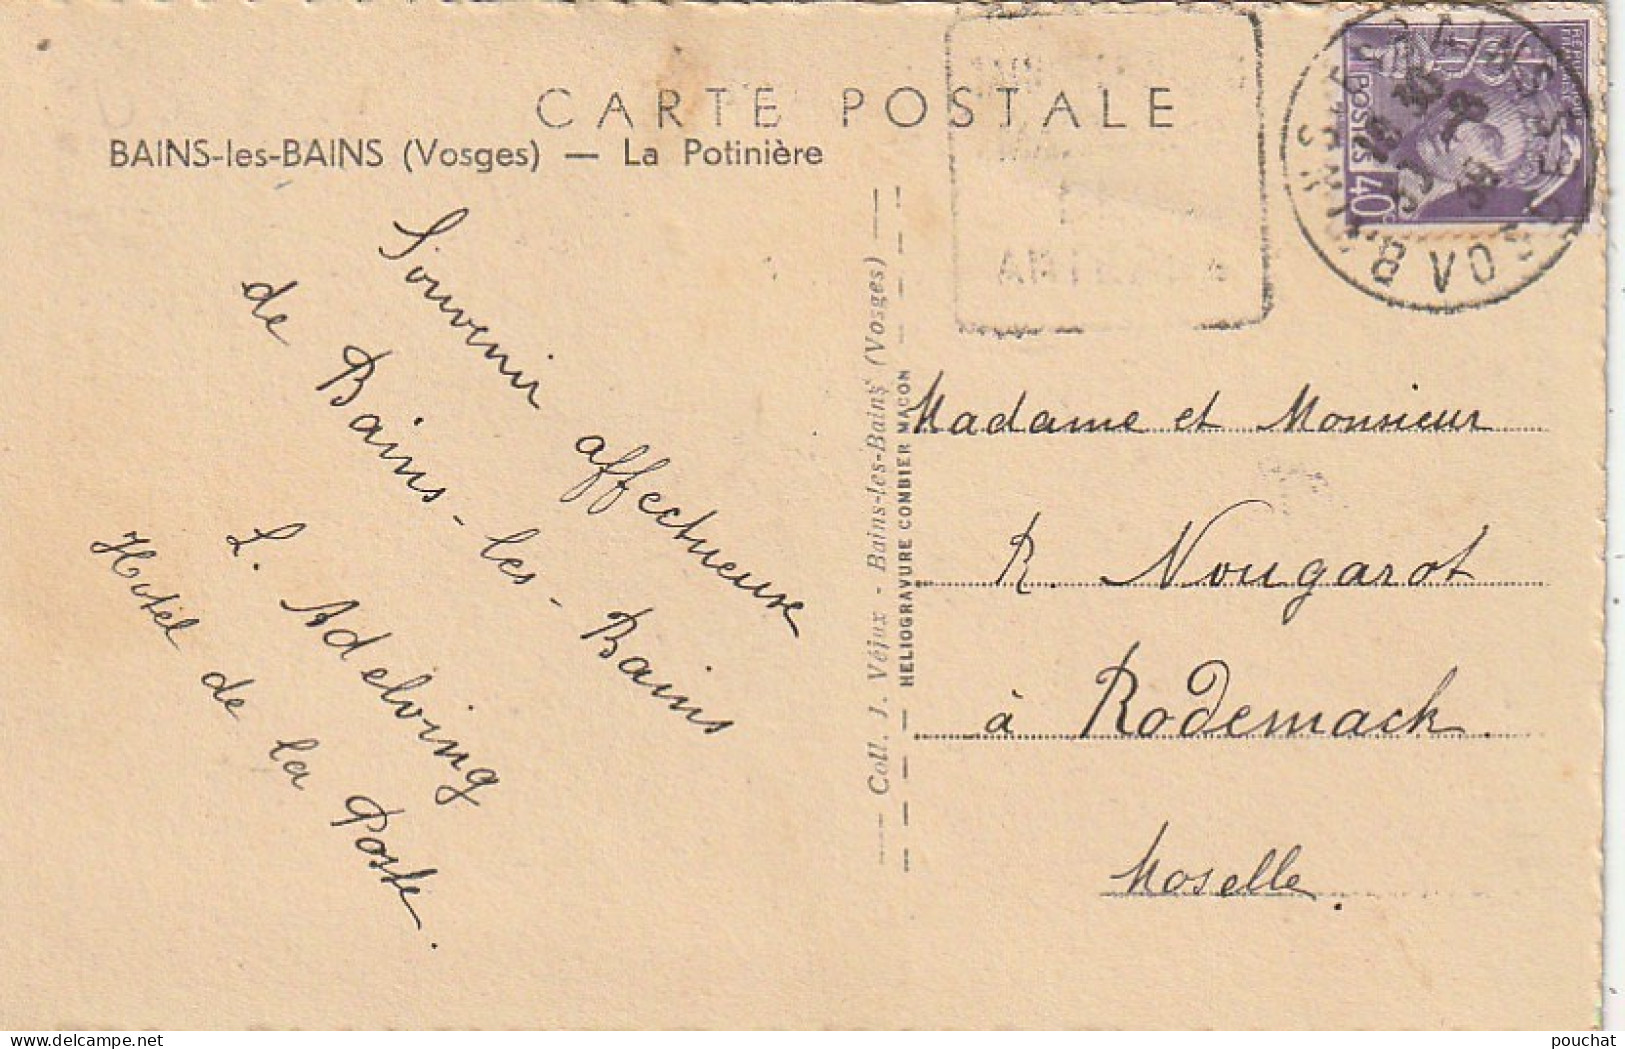 CARTE POSTALE
BAINS-les-BAINS (Vosges) — La Potinière
Souvenir affectueuse
de Bains-les-Bains
L. Adelving
Hotêl de la Poste.
Coll. J. Véjux - Bains-les-Bains (Vosges)
HELIOGRAVURE COMBIER MACON
POSTES 40c
Madame et Monsieur
R. Nougarot
à Rodemack.
Moselle.
pouchat